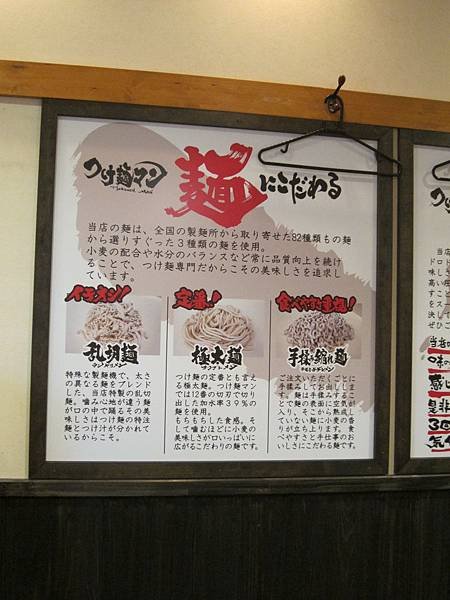 つけ麺マン
麺にこだわる
当店の麺は、全国の製麺所から取り寄せた82種類もの麺
から選りすぐった3種類の麺を使用。
小麦の配合や水分のバランスなど常に品質向上を続け
ることで、つけ麺専門だからこその美味しさを追求し
ています。
イチオシ!
乱胡麺
特殊な製麺機で、太さ
の異なる麺をブレンド
した、当店特製の乱切
麺。噛み心地が違う麺
が口の中で踊るその美
味しさはつけ麺の特注
麺とつけ汁が分かれて
いるからこそ。
定番!
極太麺
つけ麺の定番とも言え
る極太麺。つけ麺マン
では12番の切刃で切り
出した加水率39%の
麺を使用。
もちもちした食感。そ
して噛むほどに小麦の
美味しさが口いっぱいに
広がるこだわりの麺です。
食べやすさ重視!
手揉み縮れ麺
ご注文いただくごとに
手揉みしてお出ししま
す。麺は手揉みするこ
とで麺の表面に空気が
入り、そこから熟成し
ていない麺に小麦の香
りが立ち上ります。食
べやすさと手仕事のお
いしさにこだわる麺です。